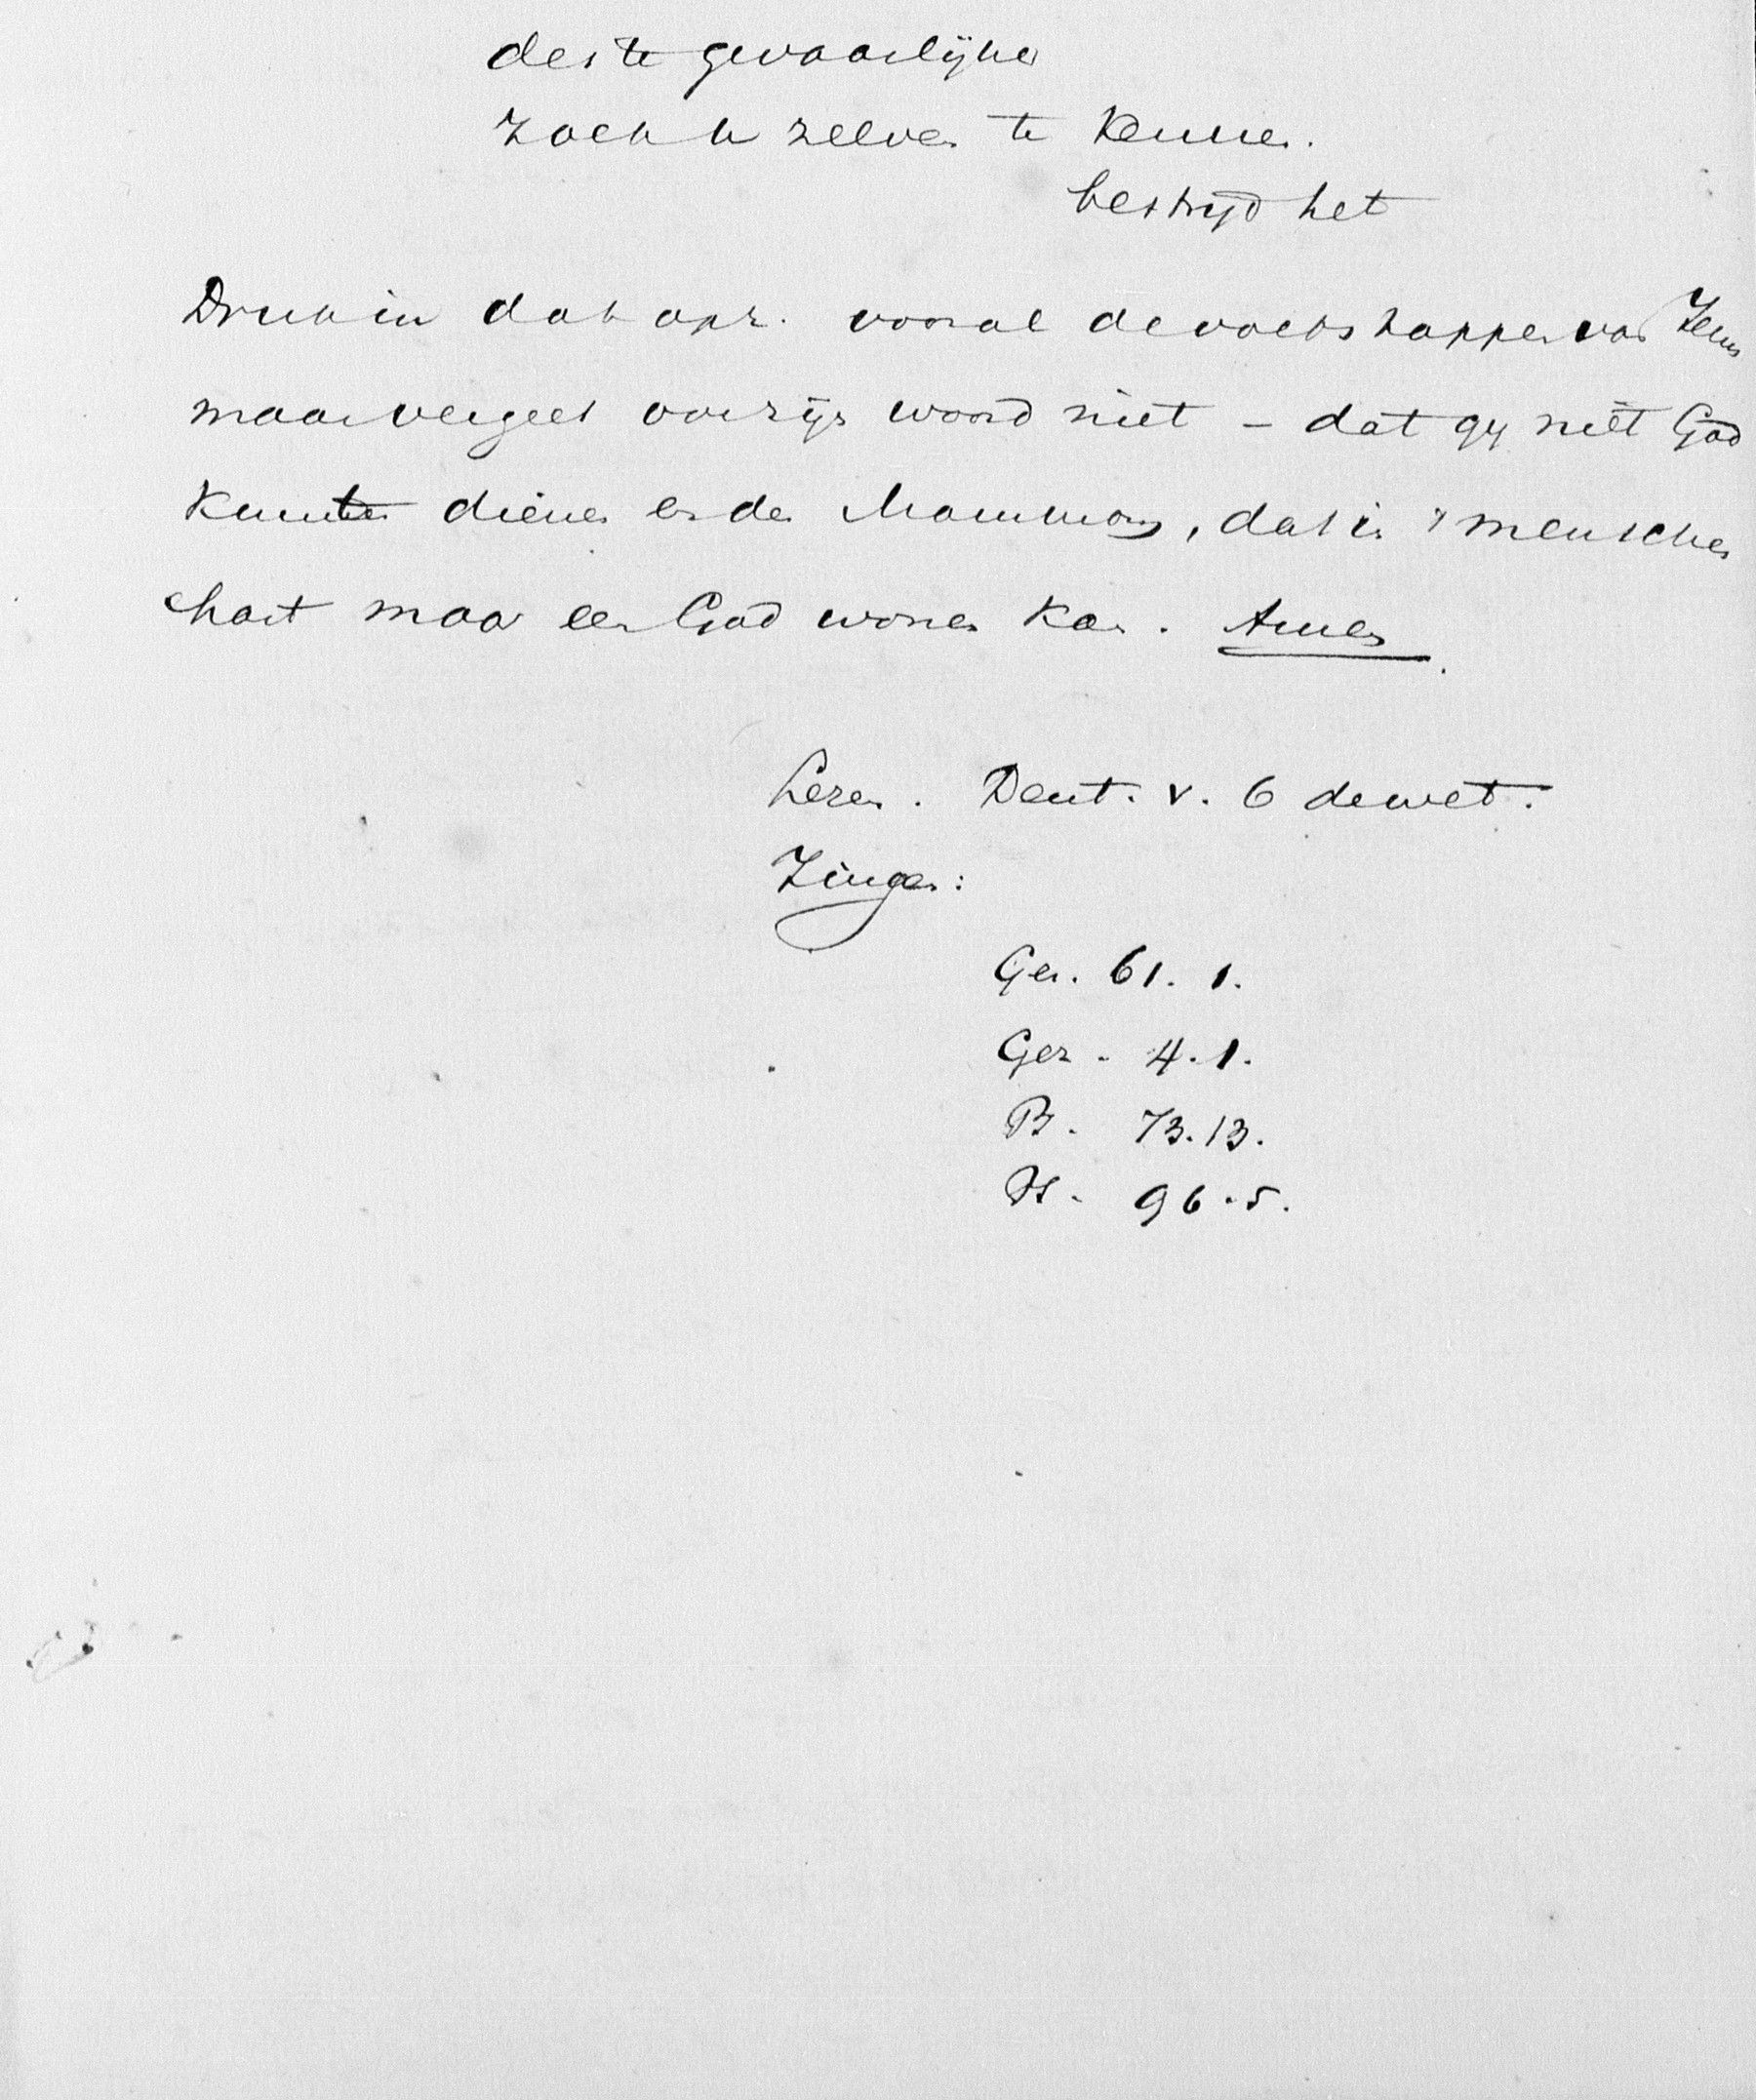 des te gevaarlijker
zoek u zelven te kennen.
bestrijd het
Druk in dat opz. vooral de voetstappen van Jezus
maar vergeet ook zijn woord niet – dat gij niet God
kunt dienen en den Mammon, dat in 's menschen
hart maar een God wonen kan. Amen.
Lezen. Deut. V. 6 de wet.
Zingen:
Gez. 61. 1.
Gez. 4. 1.
Ps. 73. 13.
Ps. 96. 5.